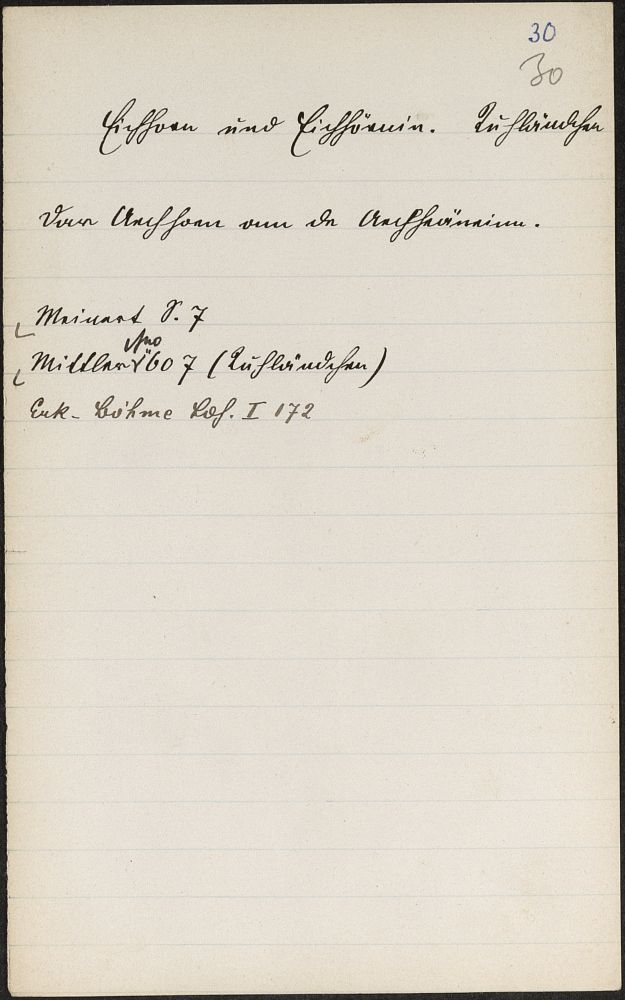 30
30
Eichhorn und Eichhörnin. Kuhländchen
Dar Aechhoen ann de Aechheäneinn.
Meinert S. 7
No
Mittler 607 (Kuhländchen)
Erk-Böhme Ldh. I 172